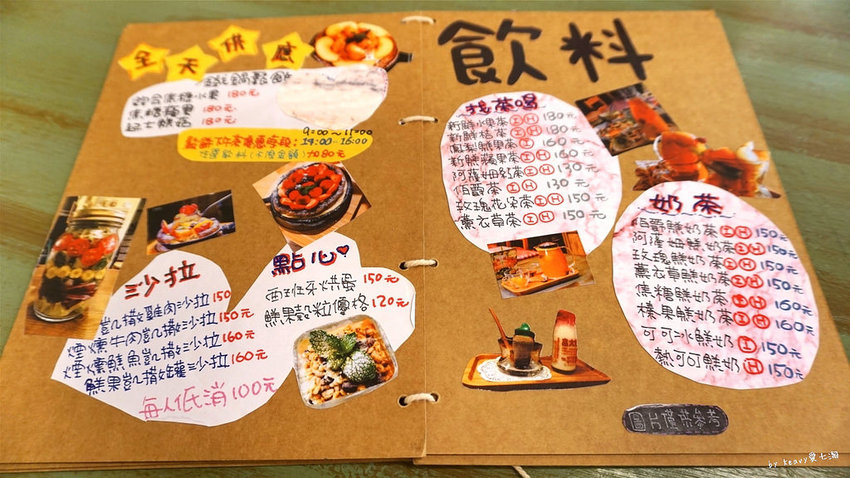 全天供應
鐵鍋鬆餅
綜合焦糖水果 180元
焦糖蘋果 180元
起士燻鮭 180元
9:00~11:00
14:00~16:00
加80元
沙拉
凱撒雞肉沙拉 150
煙燻牛肉凱撒沙拉 150元
煙燻鮭魚凱撒沙拉 160元
鮮果凱撒罐沙拉 160元
每人低消100元
點心
西班牙烘蛋 150元
鮮果穀粒優格 120元
飲料
找茶喝
新鮮水果茶 I H 180元
新鮮桔茶 I H 180元
鳳梨鮮果茶 I 160元
新鮮蘋果茶 I H 160元
阿薩姆紅茶 I H 130元
伯爵茶 I H 130元
玫瑰花朵茶 I H 150元
薰衣草茶 I H 150元
奶茶
伯爵鮮奶茶 I H 150元
阿薩姆鮮奶茶 I H 150元
玫瑰鮮奶茶 I H 150元
薰衣草鮮奶茶 I H 150元
焦糖鮮奶茶 I H 160元
榛果鮮奶茶 I H 160元
可可冰鮮奶 I 150元
熱可可鮮奶 H 150元
圖片僅供參考